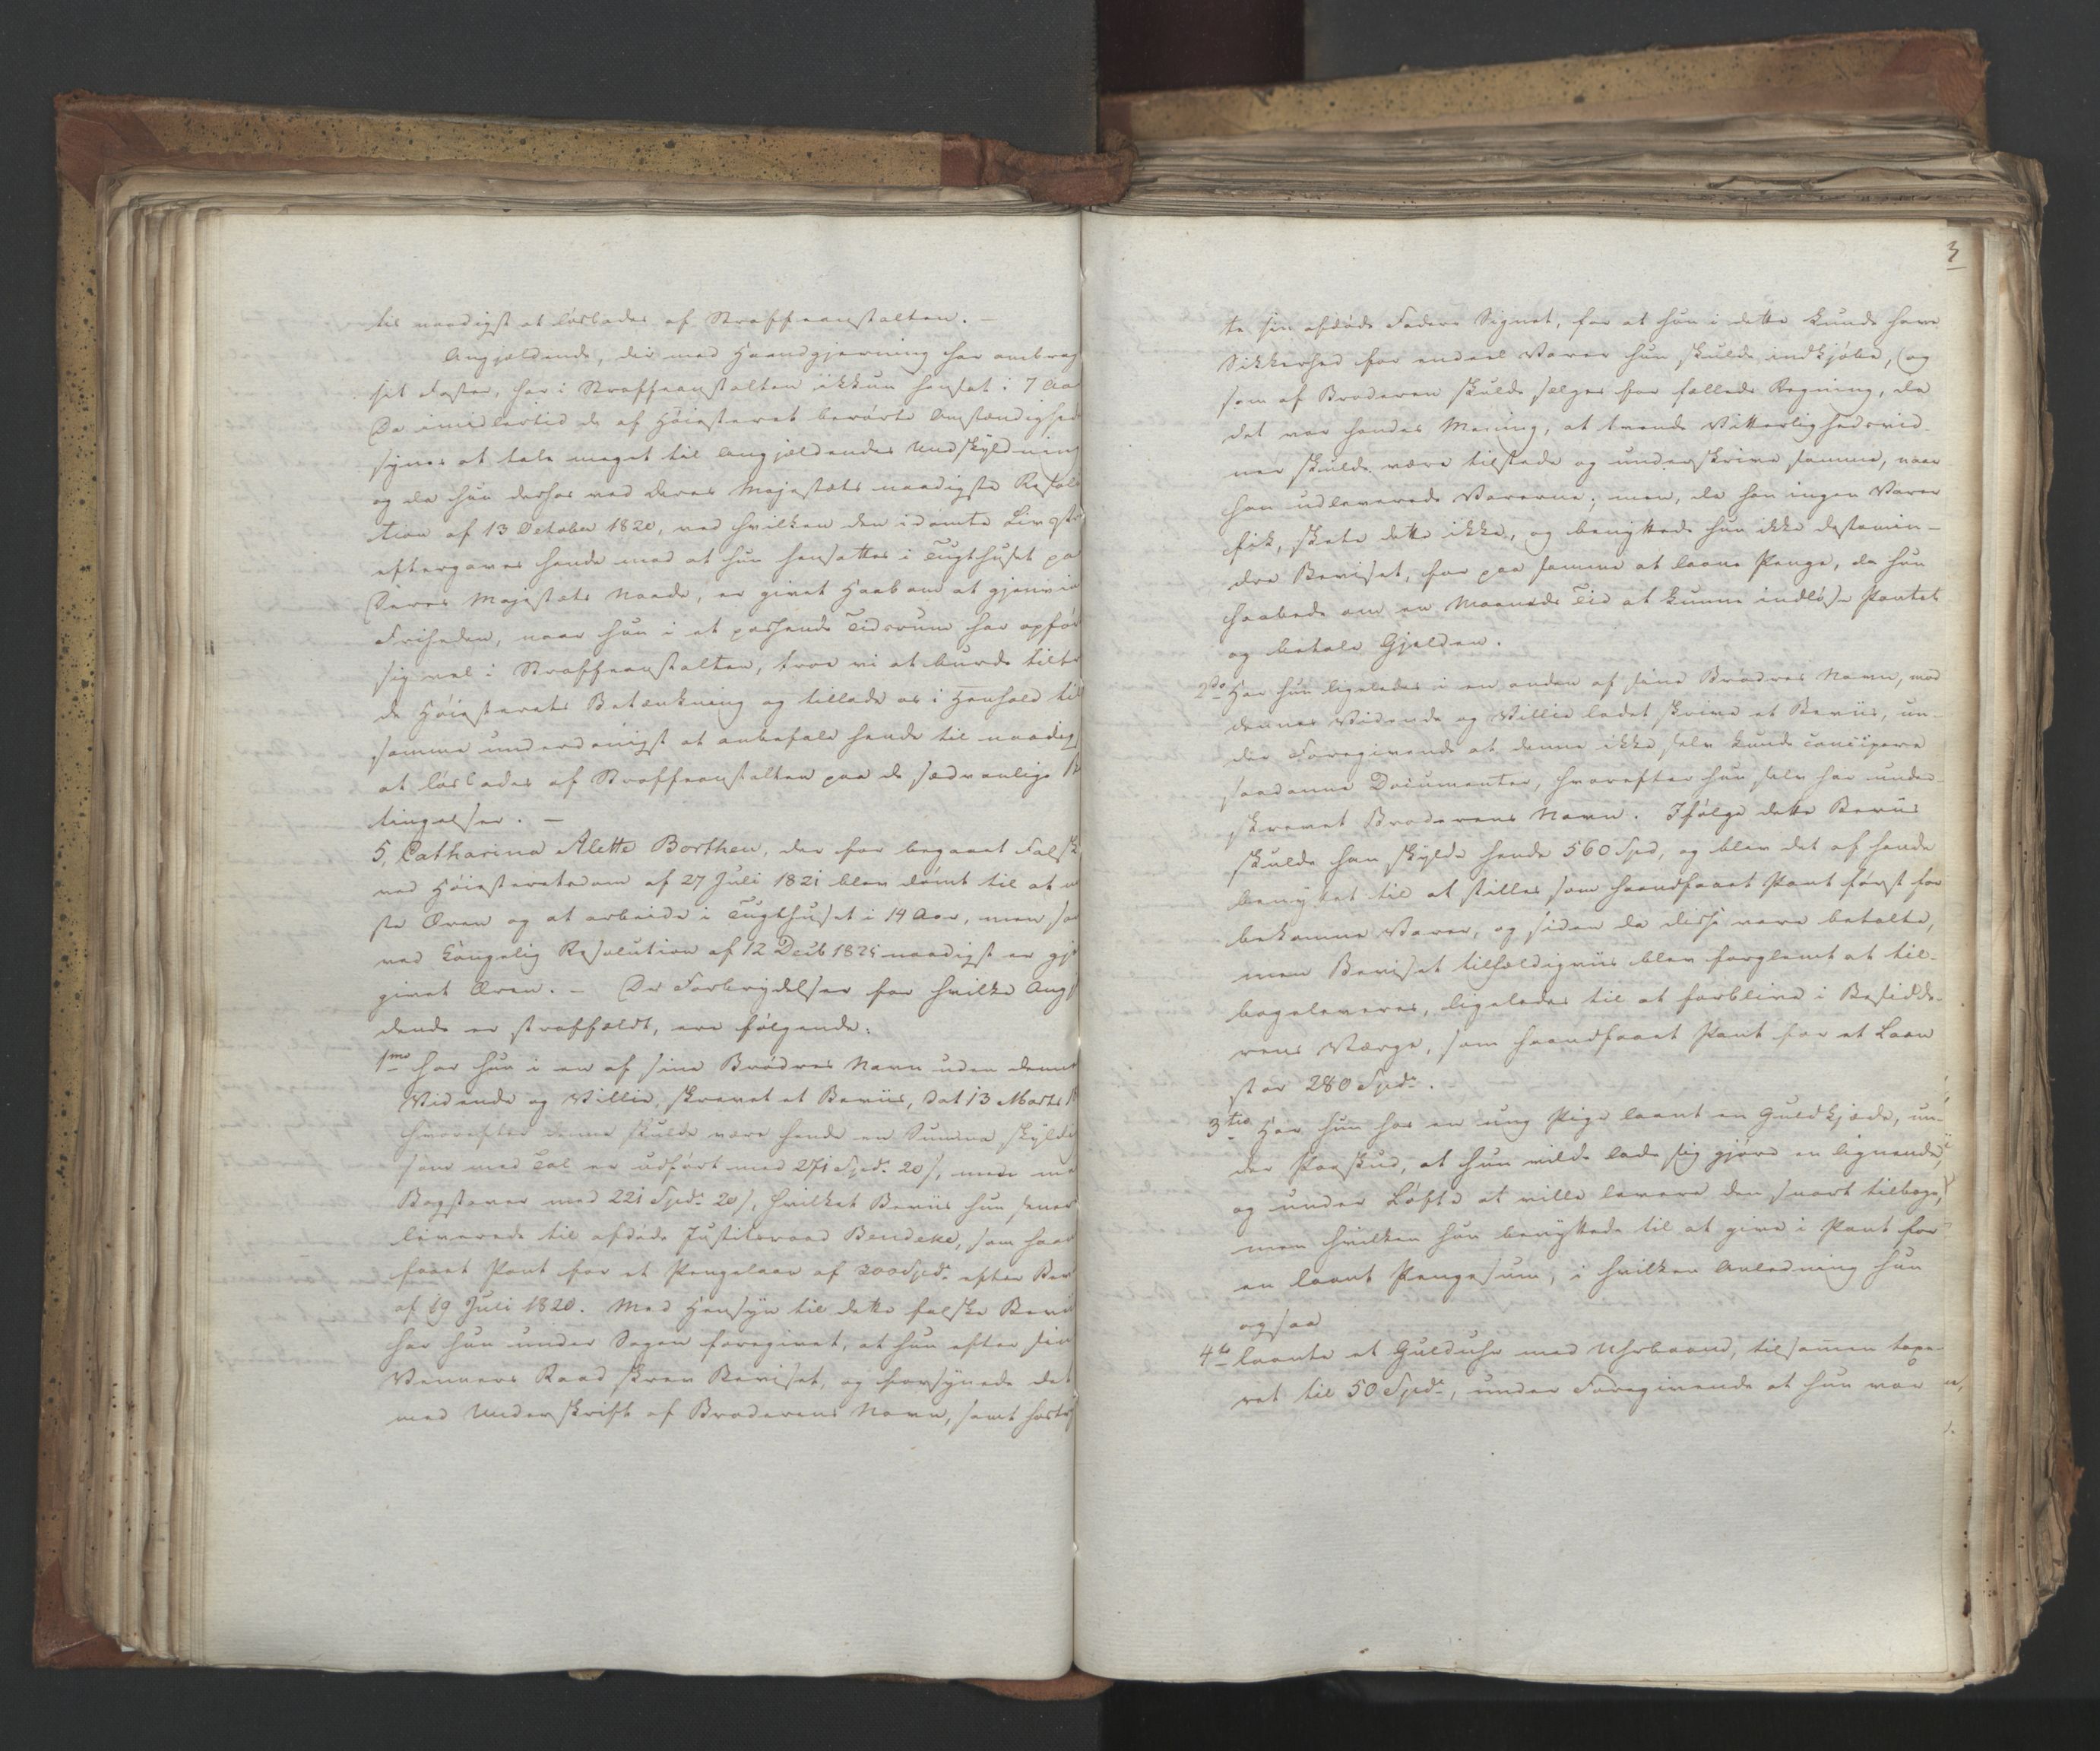 til naadigst at løslades af Straffeanstalten. –
Angjældende, der med Haandgjerning har ombrag
sit Foster, har i Straffeanstalten ikkun hensat i 7 Aar
Da imidlertid de af Høiesteret berørte Omstændighed
synes at tale meget til Angjældendes Undskyldning
og da hun derhos ved Deres Majestæts naadigste Resolu
tion af 13 October 1820, ved hvilken den idømte Livsst
eftergaves hende mod at hun hensattes i Tugthuset paa
Deres Majestæts Naade, er givet Haab om at gjenvin
Friheden, naar hun i et passende Tidsrum har opfør
sig vel i Straffeanstalten, troe vi at burde tiltr
de Høiesterets Betænkning og tillade os i Henhold til
samme underdanigst at anbefale hende til naadig
at løslades af Straffeanstalten paa de sædvanlige B
tingelser. –
5, Catharina Alette Borthen, der for begaaet Falsk
ved Høiesteretsdom af 27 Juli 1821 blev dømt til at m
ste Æren og at arbeide i Tugthuset i 14 Aar, men so
ved Kongelig Resolution af 12 Decb 1825 naadigst er gje
givet Æren. – De Forbrydelser for hvilke Angj
dende er straffældt, ere følgende:
1mo har hun i en af sine Brødres Navn uden dennes
Vidende og Villie, skrevet et Beviis, dat 13 Marts 1
hvorefter denne skulde være hende en Summa skyldig
som med Tal er udført med 271 Spd. 20 s, men me
Bogstaver med 221 Spd. 20 s, hvilket Beviis hun sener
leverede til afdøde Justitsraad Bendeke, som haan
faaet Pant for et Pengelaan af 200 Spd. efter Bev
af 19 Juli 1820. Med Hensyn til dette falske Bevi
har hun under Sagen foregivet, at hun efter sin
Venners Raad skrev Beviset, og forsynede det
med Underskrift af Broderens Navn, samt hosty
3
te sin afdøde Faders Signet, for at hun i dette kunde have
Sikkerhed for endeel Varer hun skulde indkjøbe, og
som af Broderen skulde sælges for fælleds Regning, da
det var hendes Mening, at tvende Vitterlighedsvid-
ner skulde være tilstede og underskrive samme, naar
han udleverede Varerne; men, da han ingen Varer
fik, skete dette ikke, og benyttede hun ikke destomin-
dre Beviset, for paa samme at laane Penge, da hun
haabede om en Maaneds Tid at kunne indløse Pantet
og betale Gjelden.
2do Har hun ligeledes i en anden af sine Brødres Navn, mod
dennes Vidende og Villie ladet skrive et Beviis, un-
der Foregivende at denne ikke selv kunde concipere
saadanne Documenter, hvorefter hun selv har under-
skrevet Broderens Navn. Ifølge dette Beviis
skulde han skylde hende 560 Spd, og blev det af hende
benyttet til at stilles som haandfaaet Pant først for
bekomne Varer, og siden da disse vare betalte,
men Beviset tilfældigviis blev forglemt at til-
bageleveres, ligeledes til at forblive i Besidde-
rens Værge, som haandfaaet Pant for et Laan
stor 280 Spd.
3tio Har hun hos en ung Pige laant en Guldkjæde, un-
der Paaskud, at hun vilde lade sig gjøre en lignende,
og under Løfte at ville levere den snart tilbage,
men hvilken hun benyttede til at give i Pant for
en laant Pengesum, i hvilken Anledning hun
ogsaa
4to laante et Gulduhr med Uhrbaand, tilsamen taxe-
ret til 50 Spd., under Foregivende at hun var